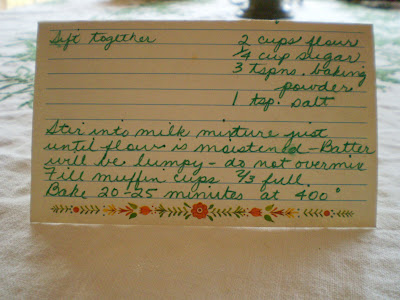 Sift together 2 cups flour
1/4 cup sugar
3 tspns. baking
powder
1 tsp. salt
Stir into milk mixture just
until flour is moistened - Batter
will be lumpy - do not overmix
Fill muffin cups 2/3 full.
Bake 20-25 minutes at 400°